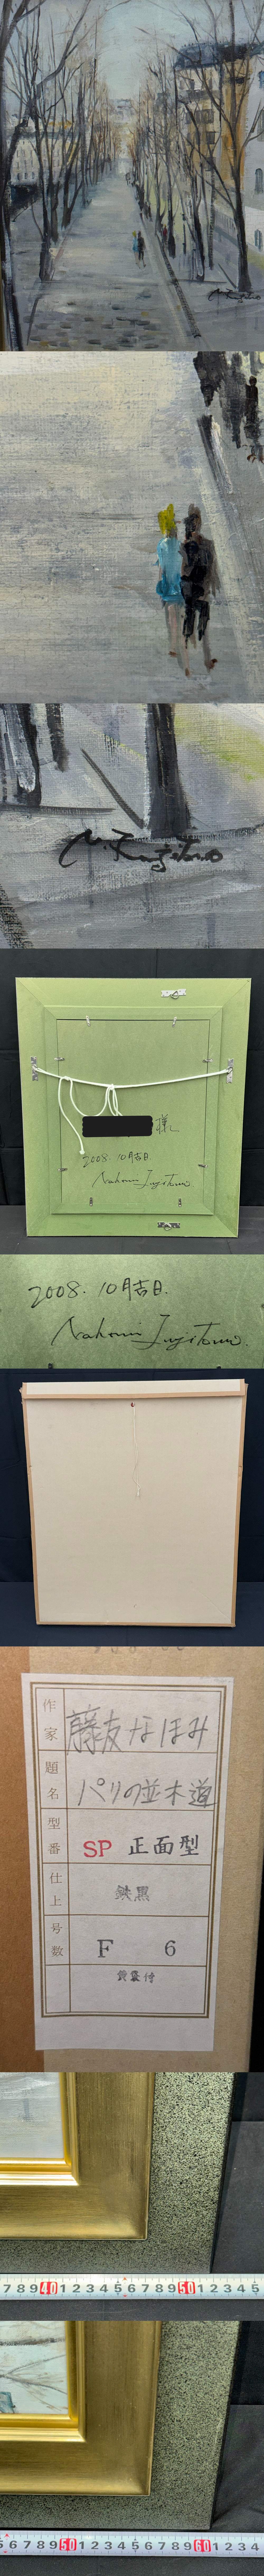 N. Fujitomo
N. Fujitomo
様
2008. 10月吉日.
Nahomi Fujitomo
2008. 10月吉日.
Nahomi Fujitomo.
作家 藤友なほみ
題名 パリの並木道
型番 SP 正面型
仕上 鉄黒
号数 F 6
黄袋付
7 8 9 40 1 2 3 4 5 6 7 8 9 50 1 2 3 4 5
5 6 7 8 9 50 1 2 3 4 5 6 7 8 9 60 1 2 3 4